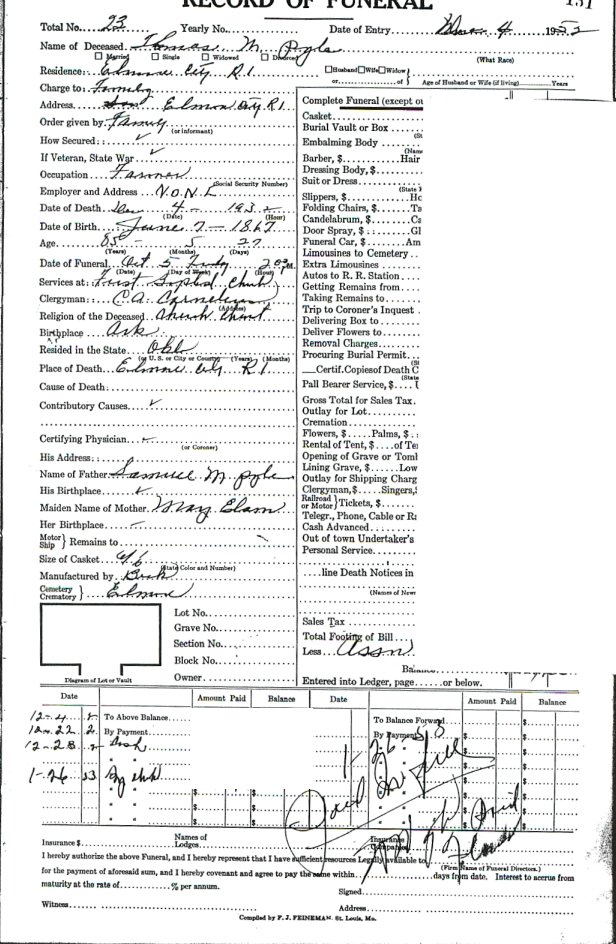 RECORD OF FUNERAL 131
Total No. 23 Yearly No. Date of Entry 4 1952
Name of Deceased Thomas M. Pyle
Married Single Widowed Divorced (What Race)
Residence: Elmore City R1 Husband Wife Widow
or of Age of Husband or Wife (if living) Years
Charge to: Family
Address Elmore City R1
Order given by Family
(or informant)
How Secured: ✓
If Veteran, State War ✓
Occupation Farmer
(Social Security Number)
Employer and Address
Date of Death 4 - 195
(Date) (Hour)
Date of Birth June 7 - 1867
Age 85 - 5 27
(Years) (Months) (Days)
Date of Funeral 5 2:00 PM
(Date) (Day of Week) (Hour)
Services at: First Baptist Church
(Address)
Clergyman: C.A. Cornelius
Religion of the Deceased Church
Birthplace Ark
Resided in the State Okla
(or U. S. or City or County) (Years) (Months)
Place of Death Elmore City R1
Cause of Death:
Contributory Causes ✓
Certifying Physician
(or Coroner)
His Address
Name of Father Samuel M Pyle
His Birthplace ✓
Maiden Name of Mother Mary Elam
Her Birthplace
Motor Ship } Remains to
Size of Casket 4/6
(State Color and Number)
Manufactured by
Cemetery Crematory } Elmore
Diagram of Lot or Vault
Lot No.
Grave No.
Section No.
Block No.
Owner
Complete Funeral (except ou
Casket
Burial Vault or Box
(St
Embalming Body
(Name
Barber, $ Hair
Dressing Body, $
Suit or Dress
(State
Slippers, $ Ho
Folding Chairs, $ Ta
Candelabrum, $ Ca
Door Spray, $ Gl
Funeral Car, $ Am
Limousines to Cemetery
Extra Limousines
Autos to R. R. Station
Getting Remains from
Taking Remains to
Trip to Coroner's Inquest
Delivering Box to
Deliver Flowers to
Removal Charges
Procuring Burial Permit
(St
Certif. Copies of Death C
(State
Pall Bearer Service, $
Gross Total for Sales Tax
Outlay for Lot
Cremation
Flowers, $ Palms, $
Rental of Tent, $ of Te
Opening of Grave or Tomb
Lining Grave, $ Low
Outlay for Shipping Charg
Clergyman, $ Singers, $
Railroad or Motor } Tickets, $
Telegr., Phone, Cable or Ra
Cash Advanced
Out of town Undertaker's
Personal Service
line Death Notices in
(Names of New
Sales Tax
Total Footing of Bill
Less Assn
Balance
Entered into Ledger, page or below.
Date Amount Paid Balance Date Amount Paid Balance
12-4 To Above Balance To Balance Forward
12-22 2 By Payment By Payment
12-28
1-26 53 By
1-26-53
Paid in full
Insurance $ Names of Lodges Insurance Companies
I hereby authorize the above Funeral, and I hereby represent that I have sufficient resources Legally available to
(Firm Name of Funeral Directors.)
for the payment of aforesaid sum, and I hereby covenant and agree to pay the same within days from date. Interest to accrue from
maturity at the rate of % per annum. Signed
Witness Address
Compiled by F. J. FEINEMAN. St. Louis, Mo.